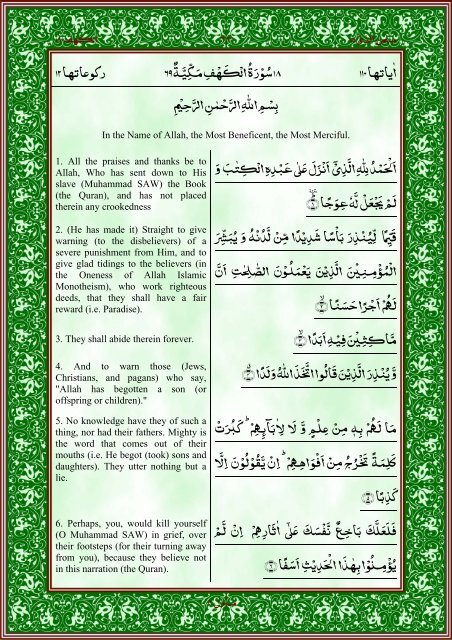 اٰیاتها ۱۱۰ ۱۸ سُوْرَةُ الْكَهْفِ مَكِّيَّةٌ ۶۹ ركوعاتها ۱۲
بِسْمِ اللهِ الرَّحْمٰنِ الرَّحِيْمِ
In the Name of Allah, the Most Beneficent, the Most Merciful.
1. All the praises and thanks be to
Allah, Who has sent down to His
slave (Muhammad SAW) the Book
(the Quran), and has not placed
therein any crookedness
اَلْحَمْدُ لِلّٰهِ الَّذِيْٓ اَنْزَلَ عَلٰى عَبْدِهِ الْكِتٰبَ وَ
لَمْ يَجْعَلْ لَّهٗ عِوَجًا ﴿۱﴾
2. (He has made it) Straight to give
warning (to the disbelievers) of a
severe punishment from Him, and to
give glad tidings to the believers (in
the Oneness of Allah Islamic
Monotheism), who work righteous
deeds, that they shall have a fair
reward (i.e. Paradise).
قَيِّمًا لِّيُنْذِرَ بَاْسًا شَدِيْدًا مِّنْ لَّدُنْهُ وَ يُبَشِّرَ
الْمُؤْمِنِيْنَ الَّذِيْنَ يَعْمَلُوْنَ الصّٰلِحٰتِ اَنَّ
لَهُمْ اَجْرًا حَسَنًا ﴿۲﴾
3. They shall abide therein forever.
مَّاكِثِيْنَ فِيْهِ اَبَدًا ﴿۳﴾
4. And to warn those (Jews,
Christians, and pagans) who say,
"Allah has begotten a son (or
offspring or children)."
وَّ يُنْذِرَ الَّذِيْنَ قَالُوا اتَّخَذَ اللهُ وَلَدًا ﴿۴﴾
5. No knowledge have they of such a
thing, nor had their fathers. Mighty is
the word that comes out of their
mouths (i.e. He begot (took) sons and
daughters). They utter nothing but a
lie.
مَا لَهُمْ بِهٖ مِنْ عِلْمٍ وَّ لَا لِاٰبَآىِٕهِمْ ؕ كَبُرَتْ
كَلِمَةً تَخْرُجُ مِنْ اَفْوَاهِهِمْ ؕ اِنْ يَّقُوْلُوْنَ اِلَّا
كَذِبًا ﴿۵﴾
6. Perhaps, you, would kill yourself
(O Muhammad SAW) in grief, over
their footsteps (for their turning away
from you), because they believe not
in this narration (the Quran).
فَلَعَلَّكَ بَاخِعٌ نَّفْسَكَ عَلٰٓى اٰثَارِهِمْ اِنْ لَّمْ
يُؤْمِنُوْا بِهٰذَا الْحَدِيْثِ اَسَفًا ﴿۶﴾